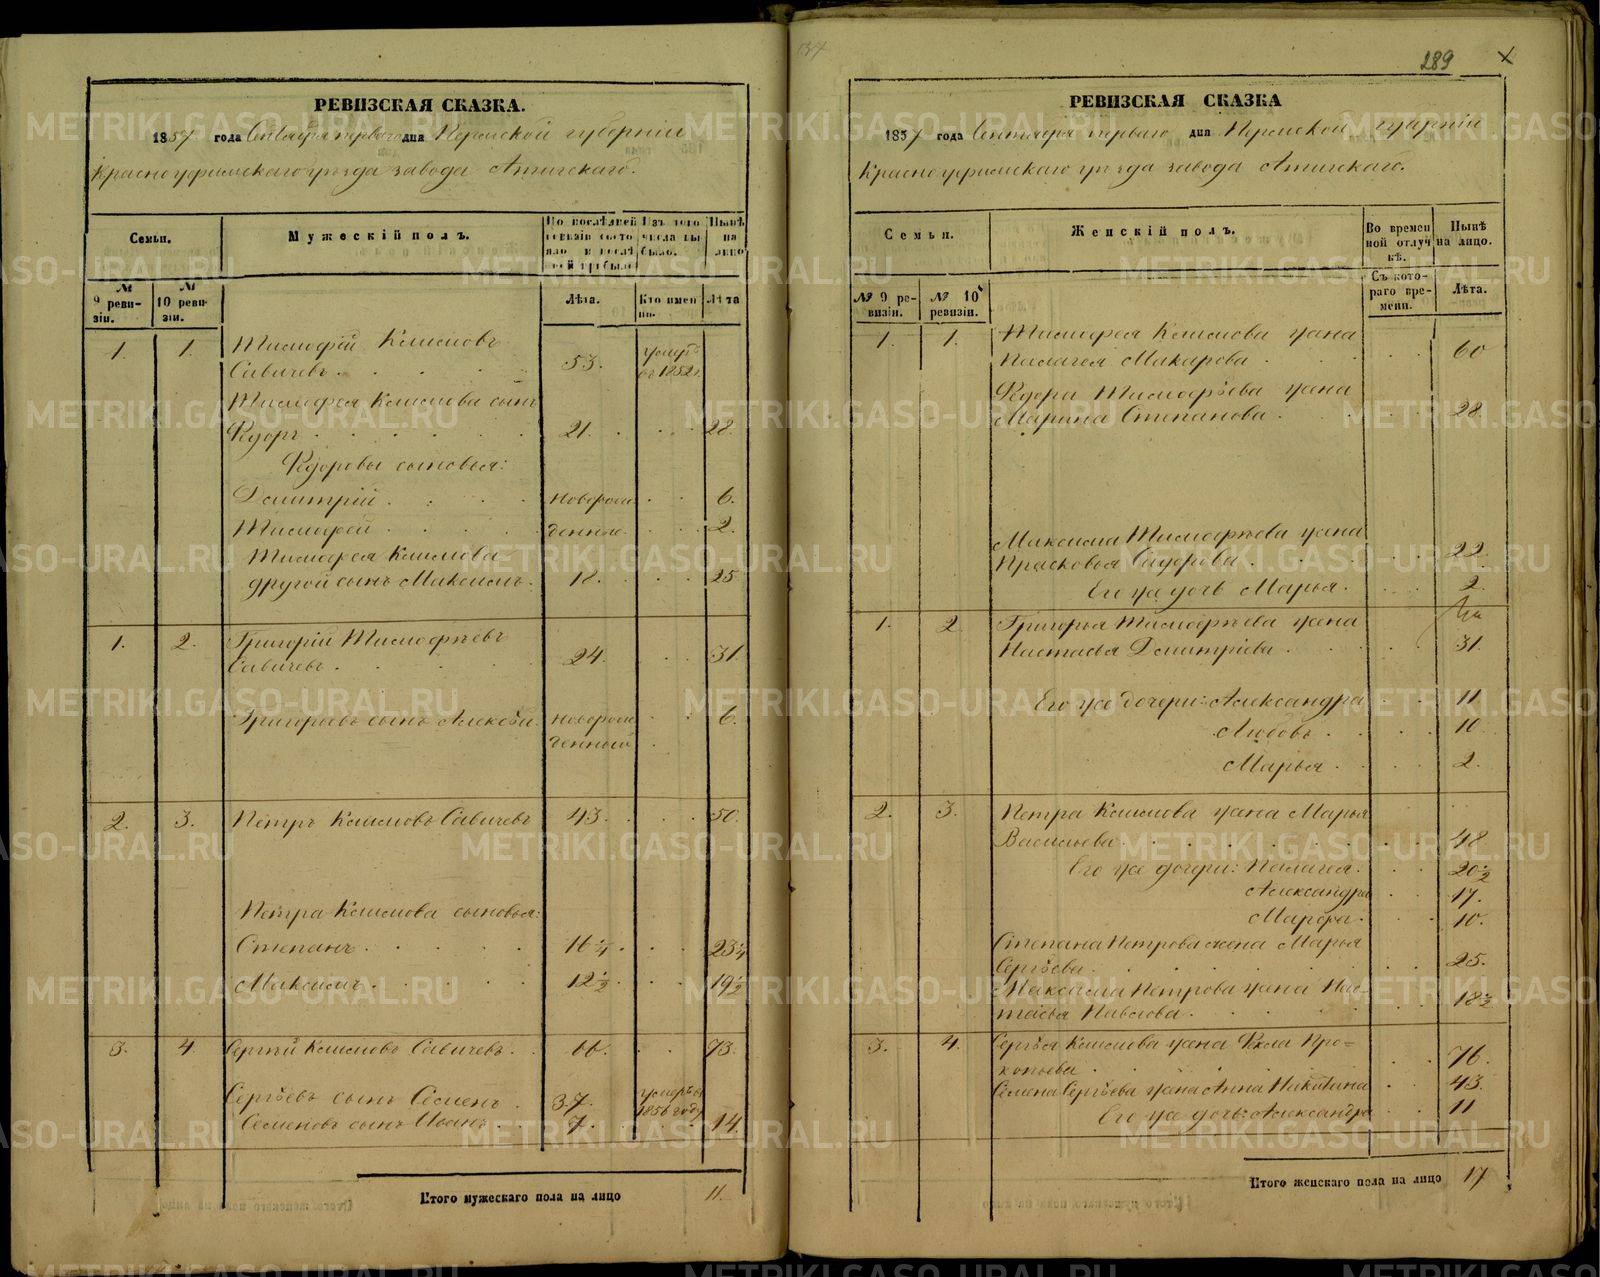 РЕВИЗСКАЯ СКАЗКА.
1857 года Сентября перваго дня Пермской губерніи
Красноуфимскаго уѣзда завода Атигскаго.
Семьи.
Мужескій полъ.
По послѣдней ревизіи состояло и послѣ ней прибыло
Изъ того числа выбыло.
Нынѣ на лицо
№ 9 ревизіи.
№ 10 ревизіи.
Лѣта.
Кто именно.
Лѣта
1. 1. Тимофей Климовъ
Савичевъ 53. умеръ въ 1852 г.
Тимофея Климова сынъ
Ѳедоръ 21. 28.
Ѳедоровы сыновья:
Дмитрій новорож 6.
Тимофей денные 2.
Тимофея Климова
другой сынъ Максимъ 18. 25
1. 2. Григорій Тимофѣевъ
Савичевъ 24. 31.
Григорьевъ сынъ Алексѣй новорож 6.
денный
2. 3. Петръ Климовъ Савичевъ 43. 50.
Петра Климова сыновья:
Степанъ 16 1/4 23 1/4
Максимъ 12 1/2 19 1/2
3. 4. Сергѣй Климовъ Савичевъ 66. 73.
Сергѣевъ сынъ Семенъ 37. умеръ въ 1856 году
Семеновъ сынъ Иванъ 7. 14.
Итого мужескаго пола на лицо 11.
137
289
РЕВИЗСКАЯ СКАЗКА
1857 года Сентября перваго дня Пермской губерніи
Красноуфимскаго уѣзда завода Атигскаго.
Семьи.
Женскій полъ.
Во временной отлучкѣ.
Нынѣ на лицо.
№ 9 ревизіи.
№ 10 ревизіи.
Съ котораго времени.
Лѣта.
1. 1. Тимофея Климова жена
Пелагея Макарова 60
Ѳедора Тимофѣева жена
Марина Степанова 28.
Максима Тимофѣева жена
Прасковья Сидорова 22.
Его же дочь Марья. 2.
1. 2. Григорья Тимофѣева жена
Настасья Дмитріева 31.
Его же дочери: Александра 11
Любовь 10.
Марья 2.
2. 3. Петра Климова жена Марья
Васильева 48
Его же дочери: Пелагея 20 1/2
Александра 17.
Марфа 10.
Степана Петрова жена Марья
Сергѣева 25.
Максима Петрова жена Нас-
тасья Павлова 18 1/2
3. 4. Сергѣя Климова жена Ѳекла Про-
копьева 76.
Семена Сергѣева жена Анна Никитина 43.
Его же дочь: Александра 11
Итого женскаго пола на лицо 17
METRIKI.GASO-URAL.RU